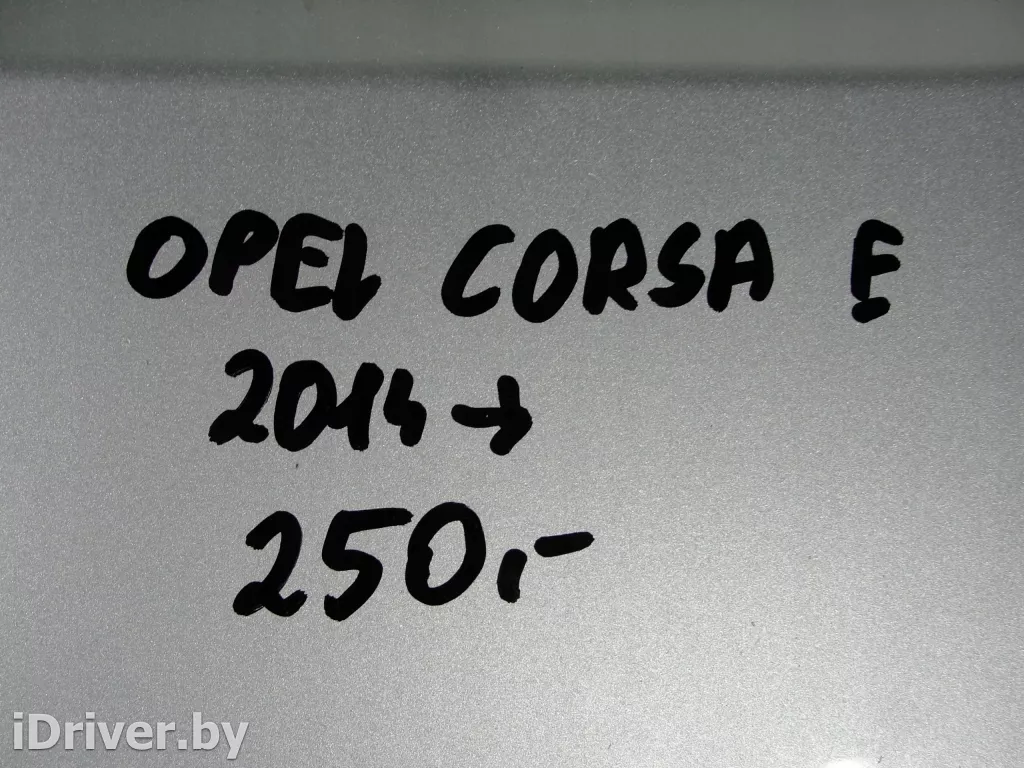 OPEL CORSA E
2014→
250,-
iDriver.by